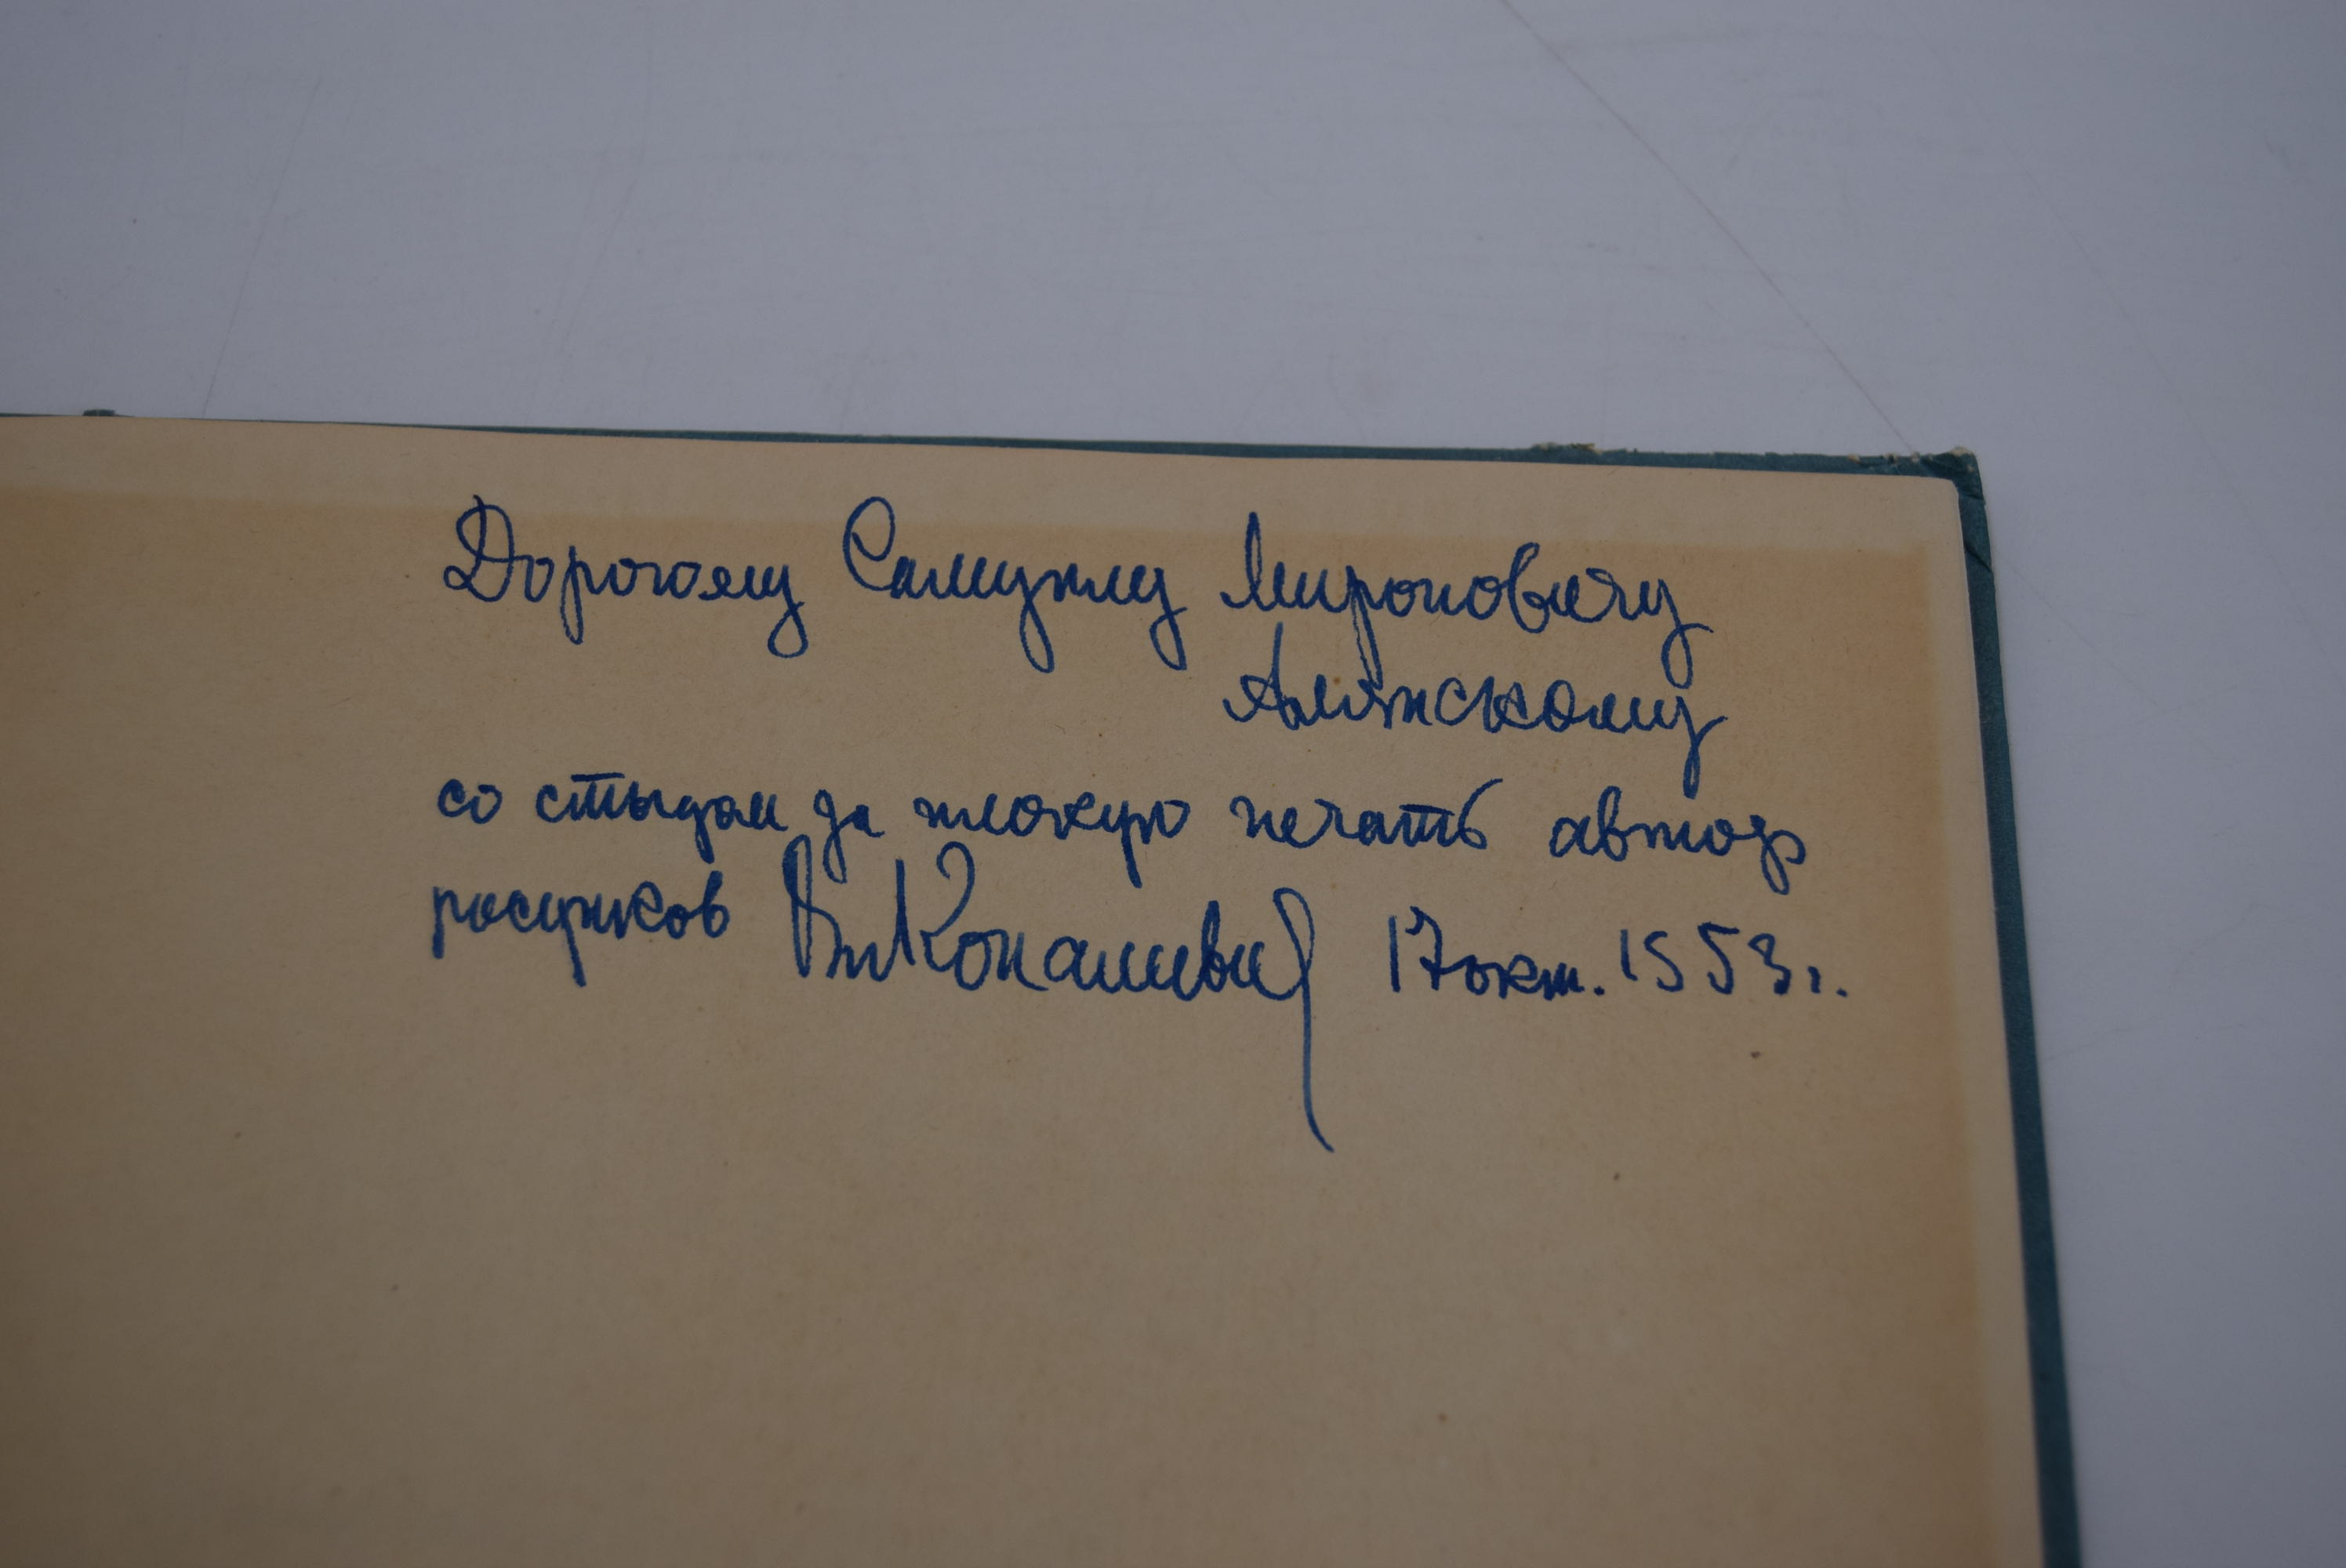 Дорогому Самуилу Мироновичу
Алянскому
со стыдом за плохую печать автор
рисунков Вл Конашевич 17 окт. 1953 г.